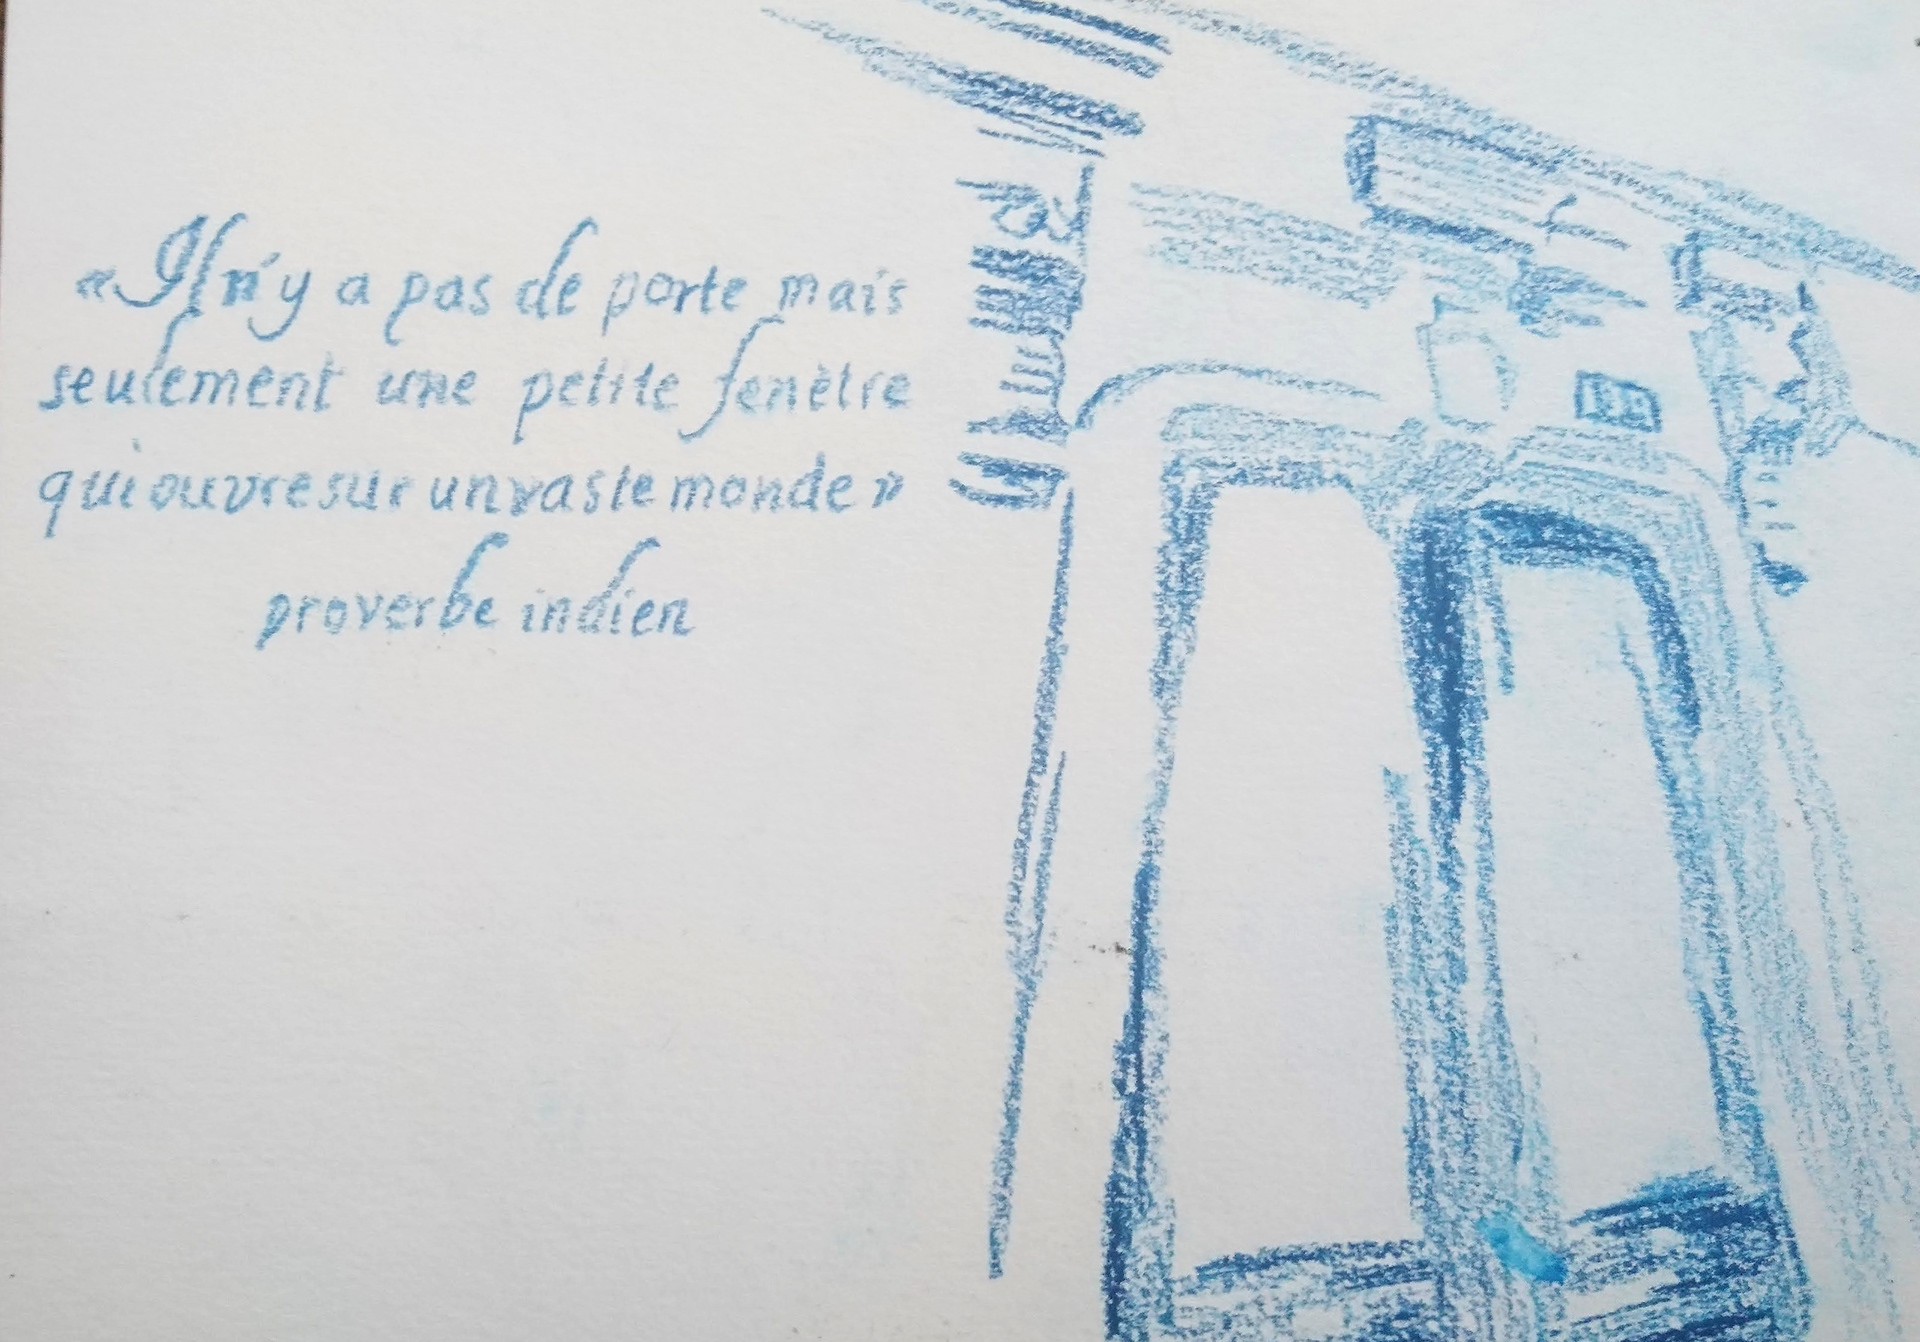 « Il n'y a pas de porte mais
seulement une petite fenêtre
qui ouvre sur un vaste monde »
proverbe indien